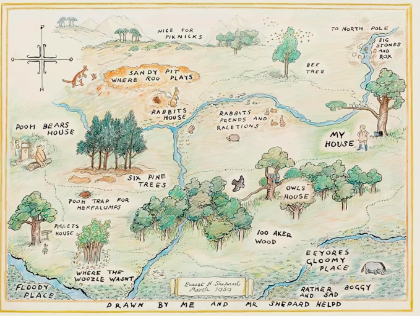 NICE FOR
PIKNICKS
TO NORTH POLE
BIG
STONES
AND
ROX
BEE
TREE
SANDY PIT
WHERE ROO PLAYS
RABBITS
HOUSE
RABBITS
FRENDS AND
RALETIONS
POOH BEARS
HOUSE
MY
HOUSE
SIX PINE
TREES
POOH TRAP FOR
HEFFALUMPS
OWLS
HOUSE
PIGLETS
HOUSE
100 AKER
WOOD
EEYORES
GLOOMY
PLACE
WHERE THE
WOOZLE WASNT
FLOODY
PLACE
RATHER BOGGY
AND SAD
DRAWN BY ME AND MR SHEPARD HELPD